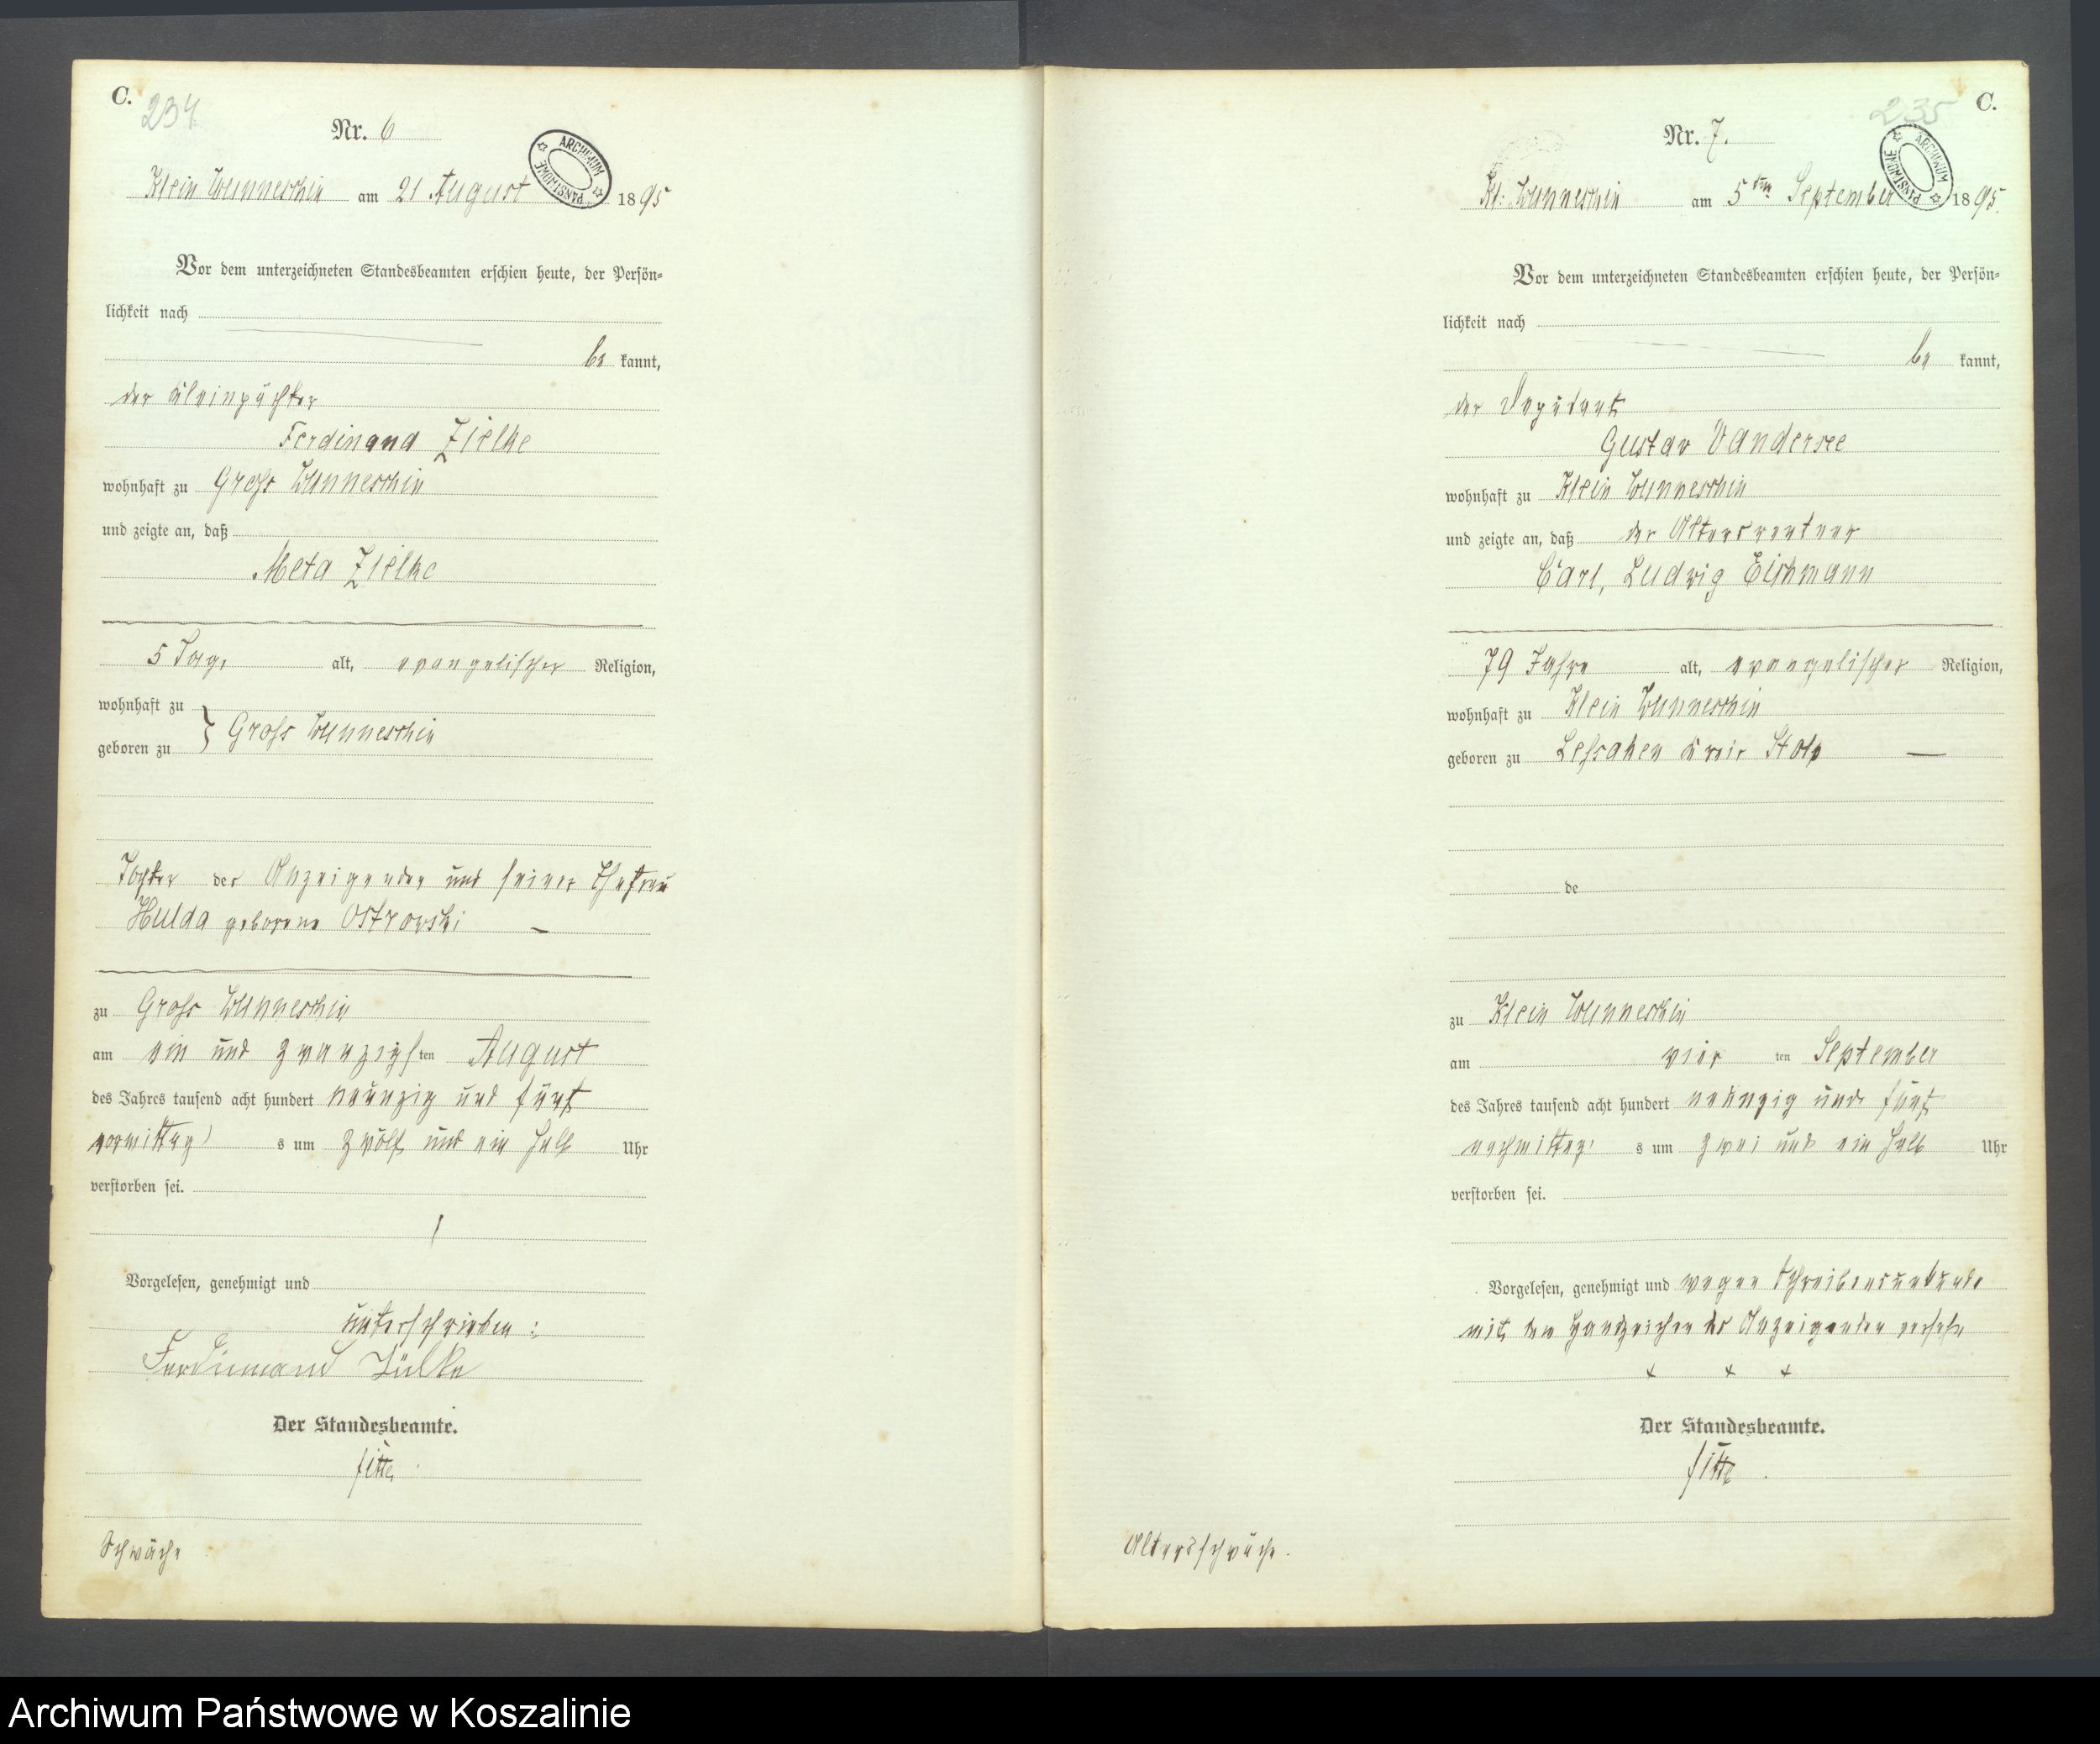 C.
234
Nr. 6
ARCHIWUM PAŃSTWOWE
Klein Wunneschin am 21 August 1895
Vor dem unterzeichneten Standesbeamten erschien heute, der Persön-
lichkeit nach
be kannt,
der Kleinpächter
Ferdinand Zielke
wohnhaft zu Gross Wunneschin
und zeigte an, daß
Meta Zielke
5 Tage alt, evangelischer Religion,
wohnhaft zu
geboren zu } Gross Wunneschin
Tochter des Anzeigenden und seiner Ehefrau
Hulda geborene Ostrowski
zu Gross Wunneschin
am ein und zwanzigsten August
des Jahres tausend acht hundert neunzig und fünf
vormittags um zwölf und ein halb Uhr
verstorben sei.
Vorgelesen, genehmigt und
unterschrieben:
Ferdinnand Zülke
Der Standesbeamte.
Schwäche
C.
235
Nr. 7.
ARCHIWUM PAŃSTWOWE
Kl: Wunneschin am 5ten September 1895.
Vor dem unterzeichneten Standesbeamten erschien heute, der Persön-
lichkeit nach
be kannt,
der Deputant
Gustav Vandersee
wohnhaft zu Klein Wunneschin
und zeigte an, daß der Altersrentner
Carl, Ludwig Eichmann
79 Jahre alt, evangelischer Religion,
wohnhaft zu Klein Wunneschin
geboren zu Lessaken Kreis Stolp
de
zu Klein Wunneschin
am vier ten September
des Jahres tausend acht hundert neunzig und fünf
nachmittags um zwei und ein halb Uhr
verstorben sei.
Vorgelesen, genehmigt und wegen Schreibensunkunde
mit den Handzeichen des Anzeigenden versehn
+ + +
Der Standesbeamte.
Altersschwäche.
Archiwum Państwowe w Koszalinie